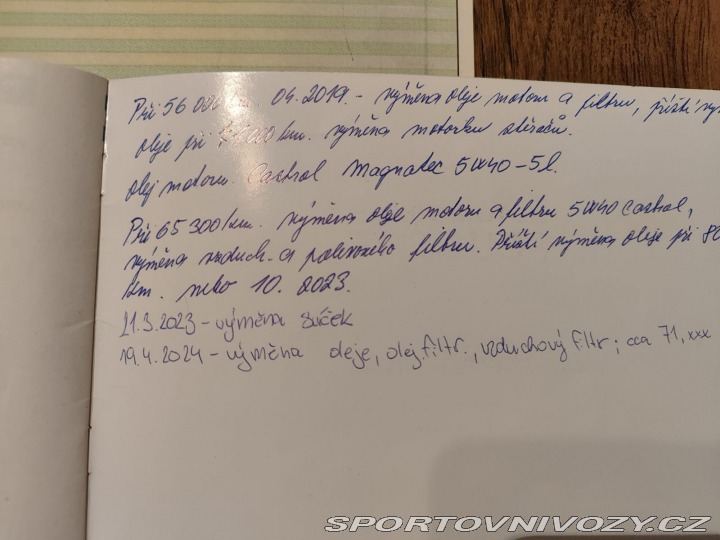 Při 56 000 km. 04.2019. - výměna oleje motoru a filtru, příští vý
oleje při km. výměna motorku stěračů.
olej motoru. Castrol Magnatec 5W40-5l.
Při 65 300 km. výměna oleje motoru a filtru 5W40 Castrol,
výměna vzduch. a palivového filtru. Příští výměna oleje při 80
km. nebo 10. 2023.
21.3.2023 - výměna svíček
19.4.2024 - výměna oleje, olej.filtr., vzduchový filtr; cca 71,xxx
SPORTOVNIVOZY.CZ